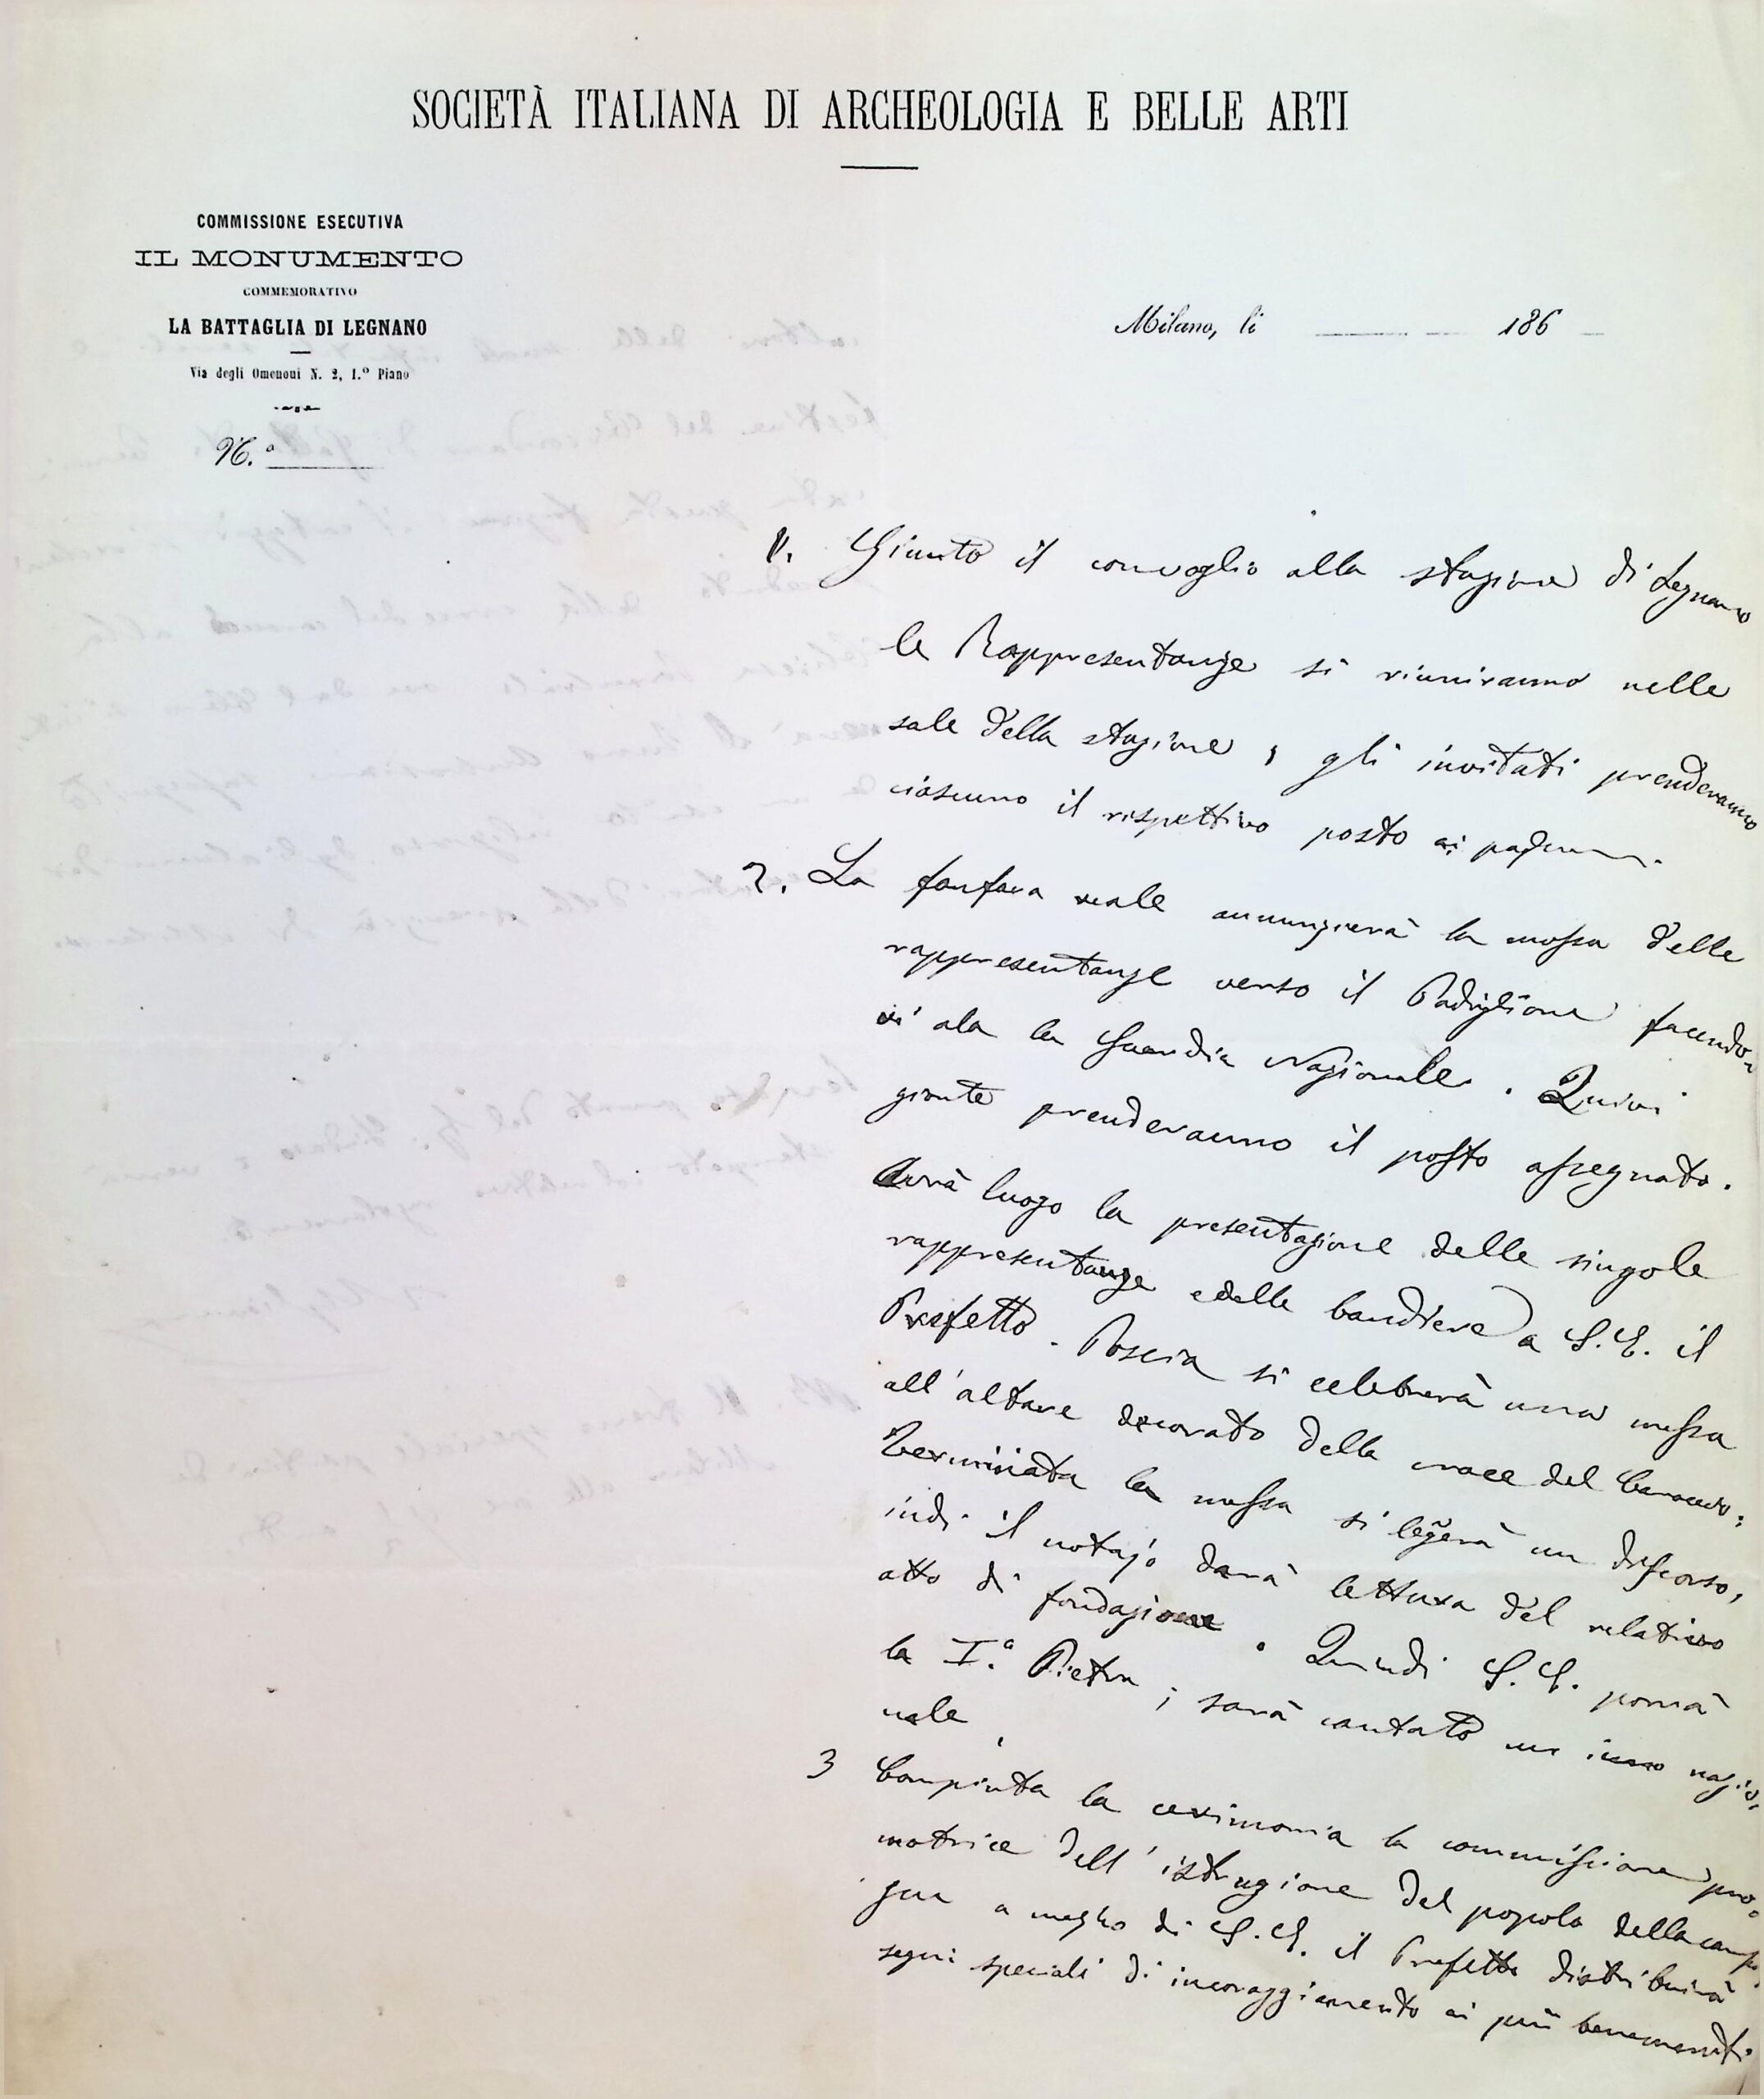 SOCIETÀ ITALIANA DI ARCHEOLOGIA E BELLE ARTI
COMMISSIONE ESECUTIVA
IL MONUMENTO
COMMEMORATIVO
LA BATTAGLIA DI LEGNANO
Via degli Omenoni N. 2, 1.º Piano
N.º
Milano, li 186
1. Giunto il convoglio alla stazione di Legnano
le Rappresentanze si riuniranno nelle
sale della stazione, gli invitati prenderanno
ciascuno il rispettivo posto ai
2. La fanfara reale annunzierà la mossa delle
rappresentanze verso il Padiglione facendo-
vi ala la Guardia Nazionale. Quivi
giunte prenderanno il posto assegnato.
Avrà luogo la presentazione delle singole
rappresentanze e delle bandiere a S. E. il
Prefetto. Poscia si celebrerà una messa
all'altare decorato della croce del Carroccio;
Terminata la messa si leggerà un discorso,
indi il notajo darà lettura del relativo
atto di fondazione. Quindi S. E. porrà
la I.ª Pietra; sarà cantato un inno nazio-
nale.
3 Compiuta la cerimonia la commissione pro-
motrice dell'istruzione del popolo della camp-
gna a mezzo di S. E. il Prefetto distribuirà
segni speciali di incoraggiamento ai più benemeriti